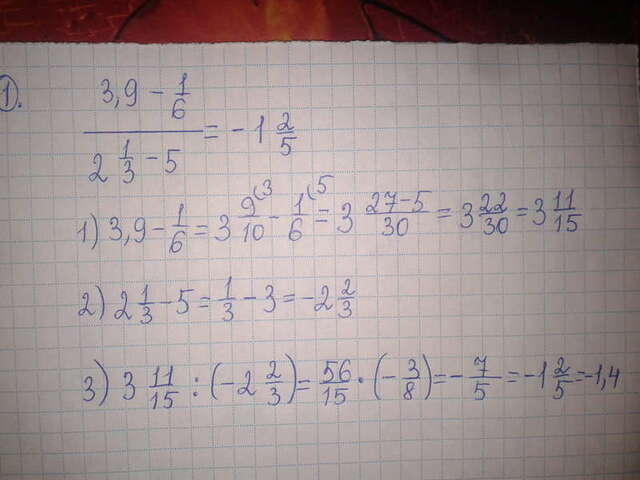 1. (3,9 - 1/6)/(2 1/3 - 5) = -1 2/5
1) 3,9 - 1/6 = 3 9/10 (3 - 1/6 (5 = 3 (27-5)/30 = 3 22/30 = 3 11/15
2) 2 1/3 - 5 = 1/3 - 3 = -2 2/3
3) 3 11/15 : (-2 2/3) = 56/15 · (-3/8) = -7/5 = -1 2/5 = -1,4